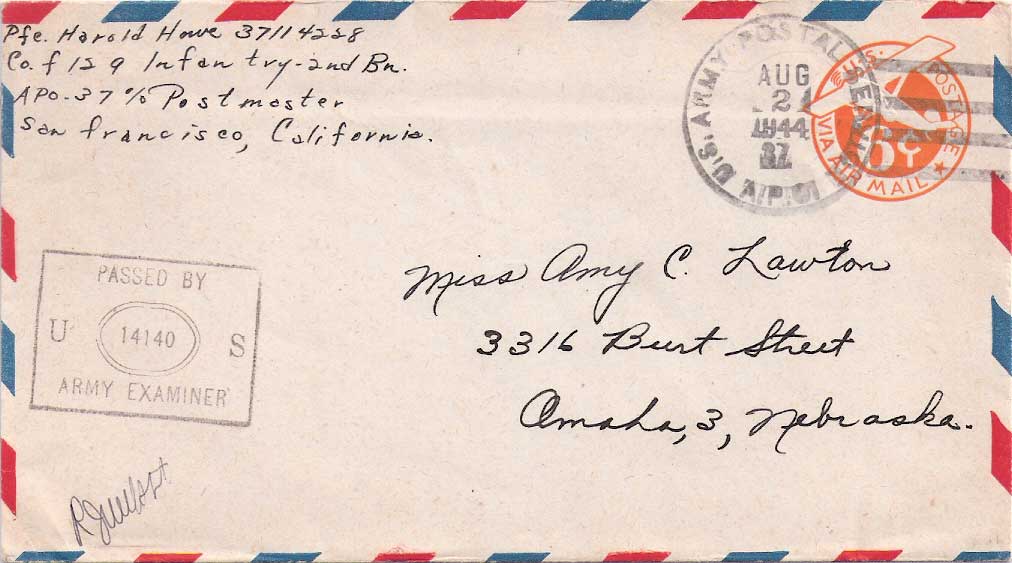 Pfc. Harold Howe 37114228
Co. f 129 Infantry-2nd Bn.
APO-37 % Postmaster
San francisco, California.
U.S. ARMY POSTAL SERVICE
AUG
21
1944
37
A.P.O.
U.S. POSTAGE
6¢
VIA AIR MAIL
PASSED BY
U 14140 S
ARMY EXAMINER
Miss Amy C. Lawton
3316 Burt Street
Omaha, 3, Nebraska.